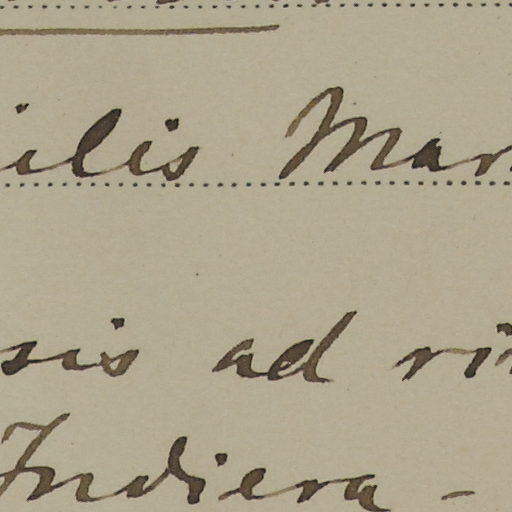 ilis Mar
sis ad ri
Indiera -